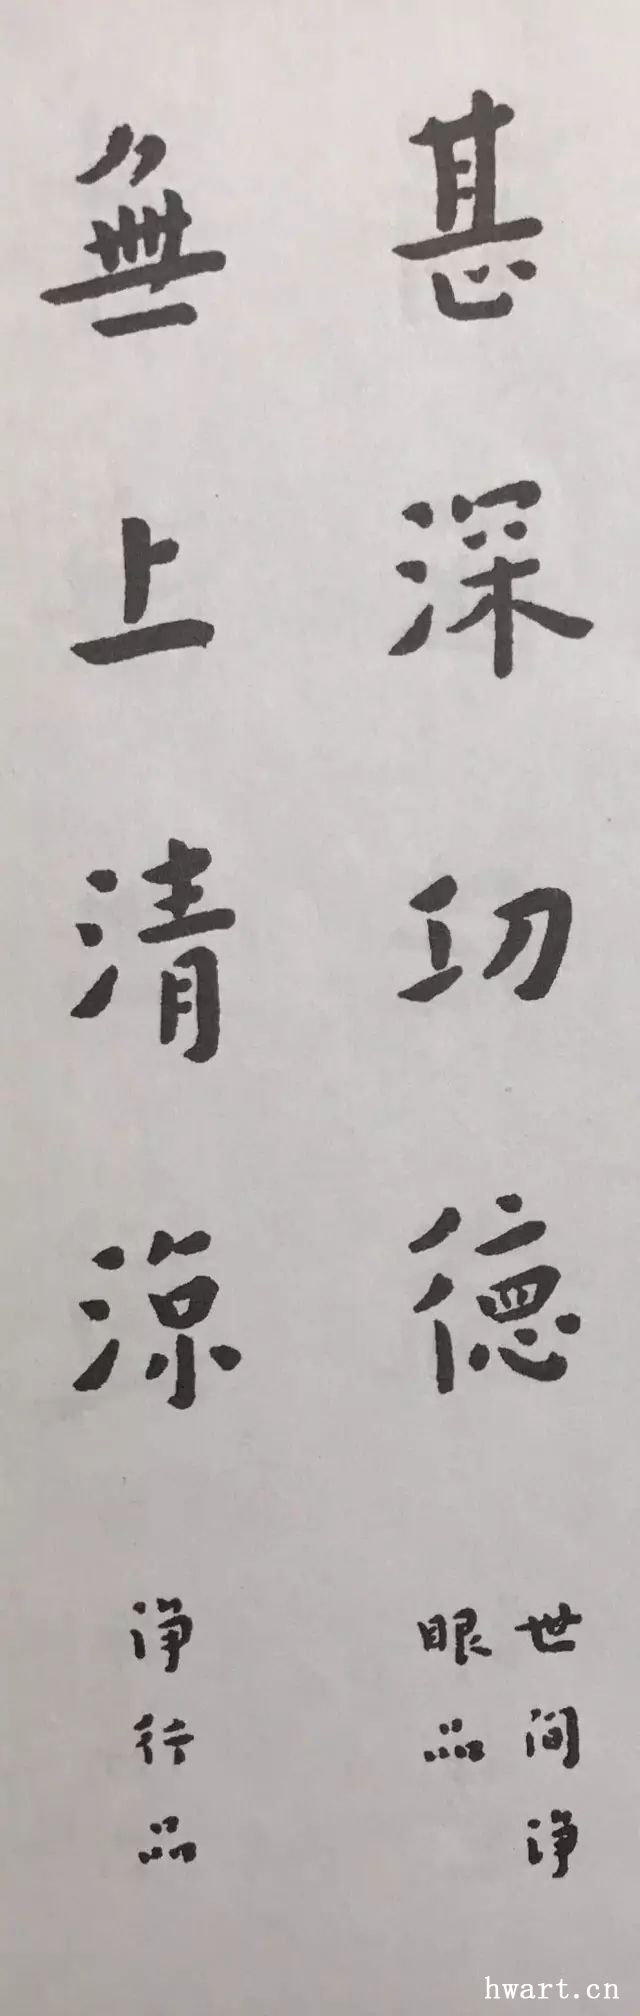 甚深功德
世间净
眼品
無上清涼
净行品
hwart.cn